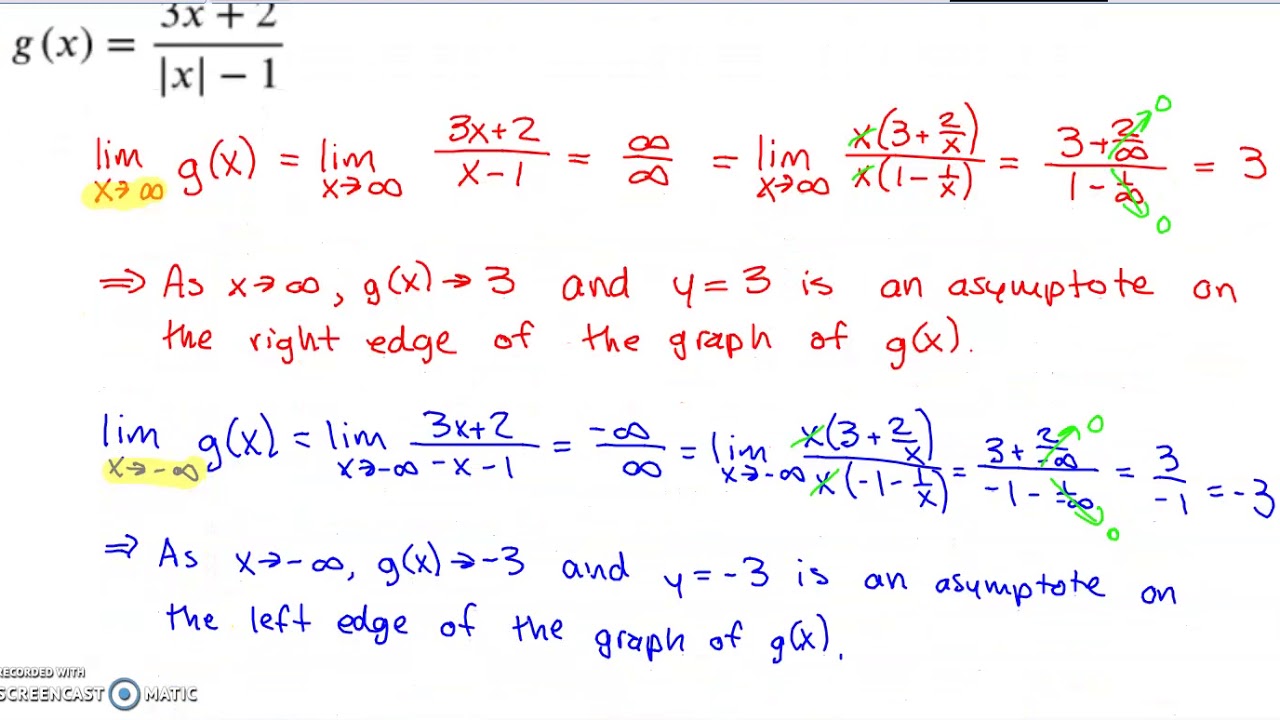 g(x) = (3x + 2)/(|x| − 1)
lim x→∞ g(x) = lim x→∞ (3x+2)/(x−1) = ∞/∞ = lim x→∞ x(3+2/x)/x(1−1/x) = (3+2/∞)/(1−1/∞) = 3
0
0
⇒ As x→∞, g(x)→3 and y=3 is an asymptote on
the right edge of the graph of g(x).
lim x→−∞ g(x) = lim x→−∞ (3x+2)/(−x−1) = −∞/∞ = lim x→−∞ x(3+2/x)/x(−1−1/x) = (3+2/−∞)/(−1−1/−∞) = 3/−1 = −3
0
0
⇒ As x→−∞, g(x)→−3 and y=−3 is an asymptote on
the left edge of the graph of g(x).
RECORDED WITH
SCREENCAST MATIC